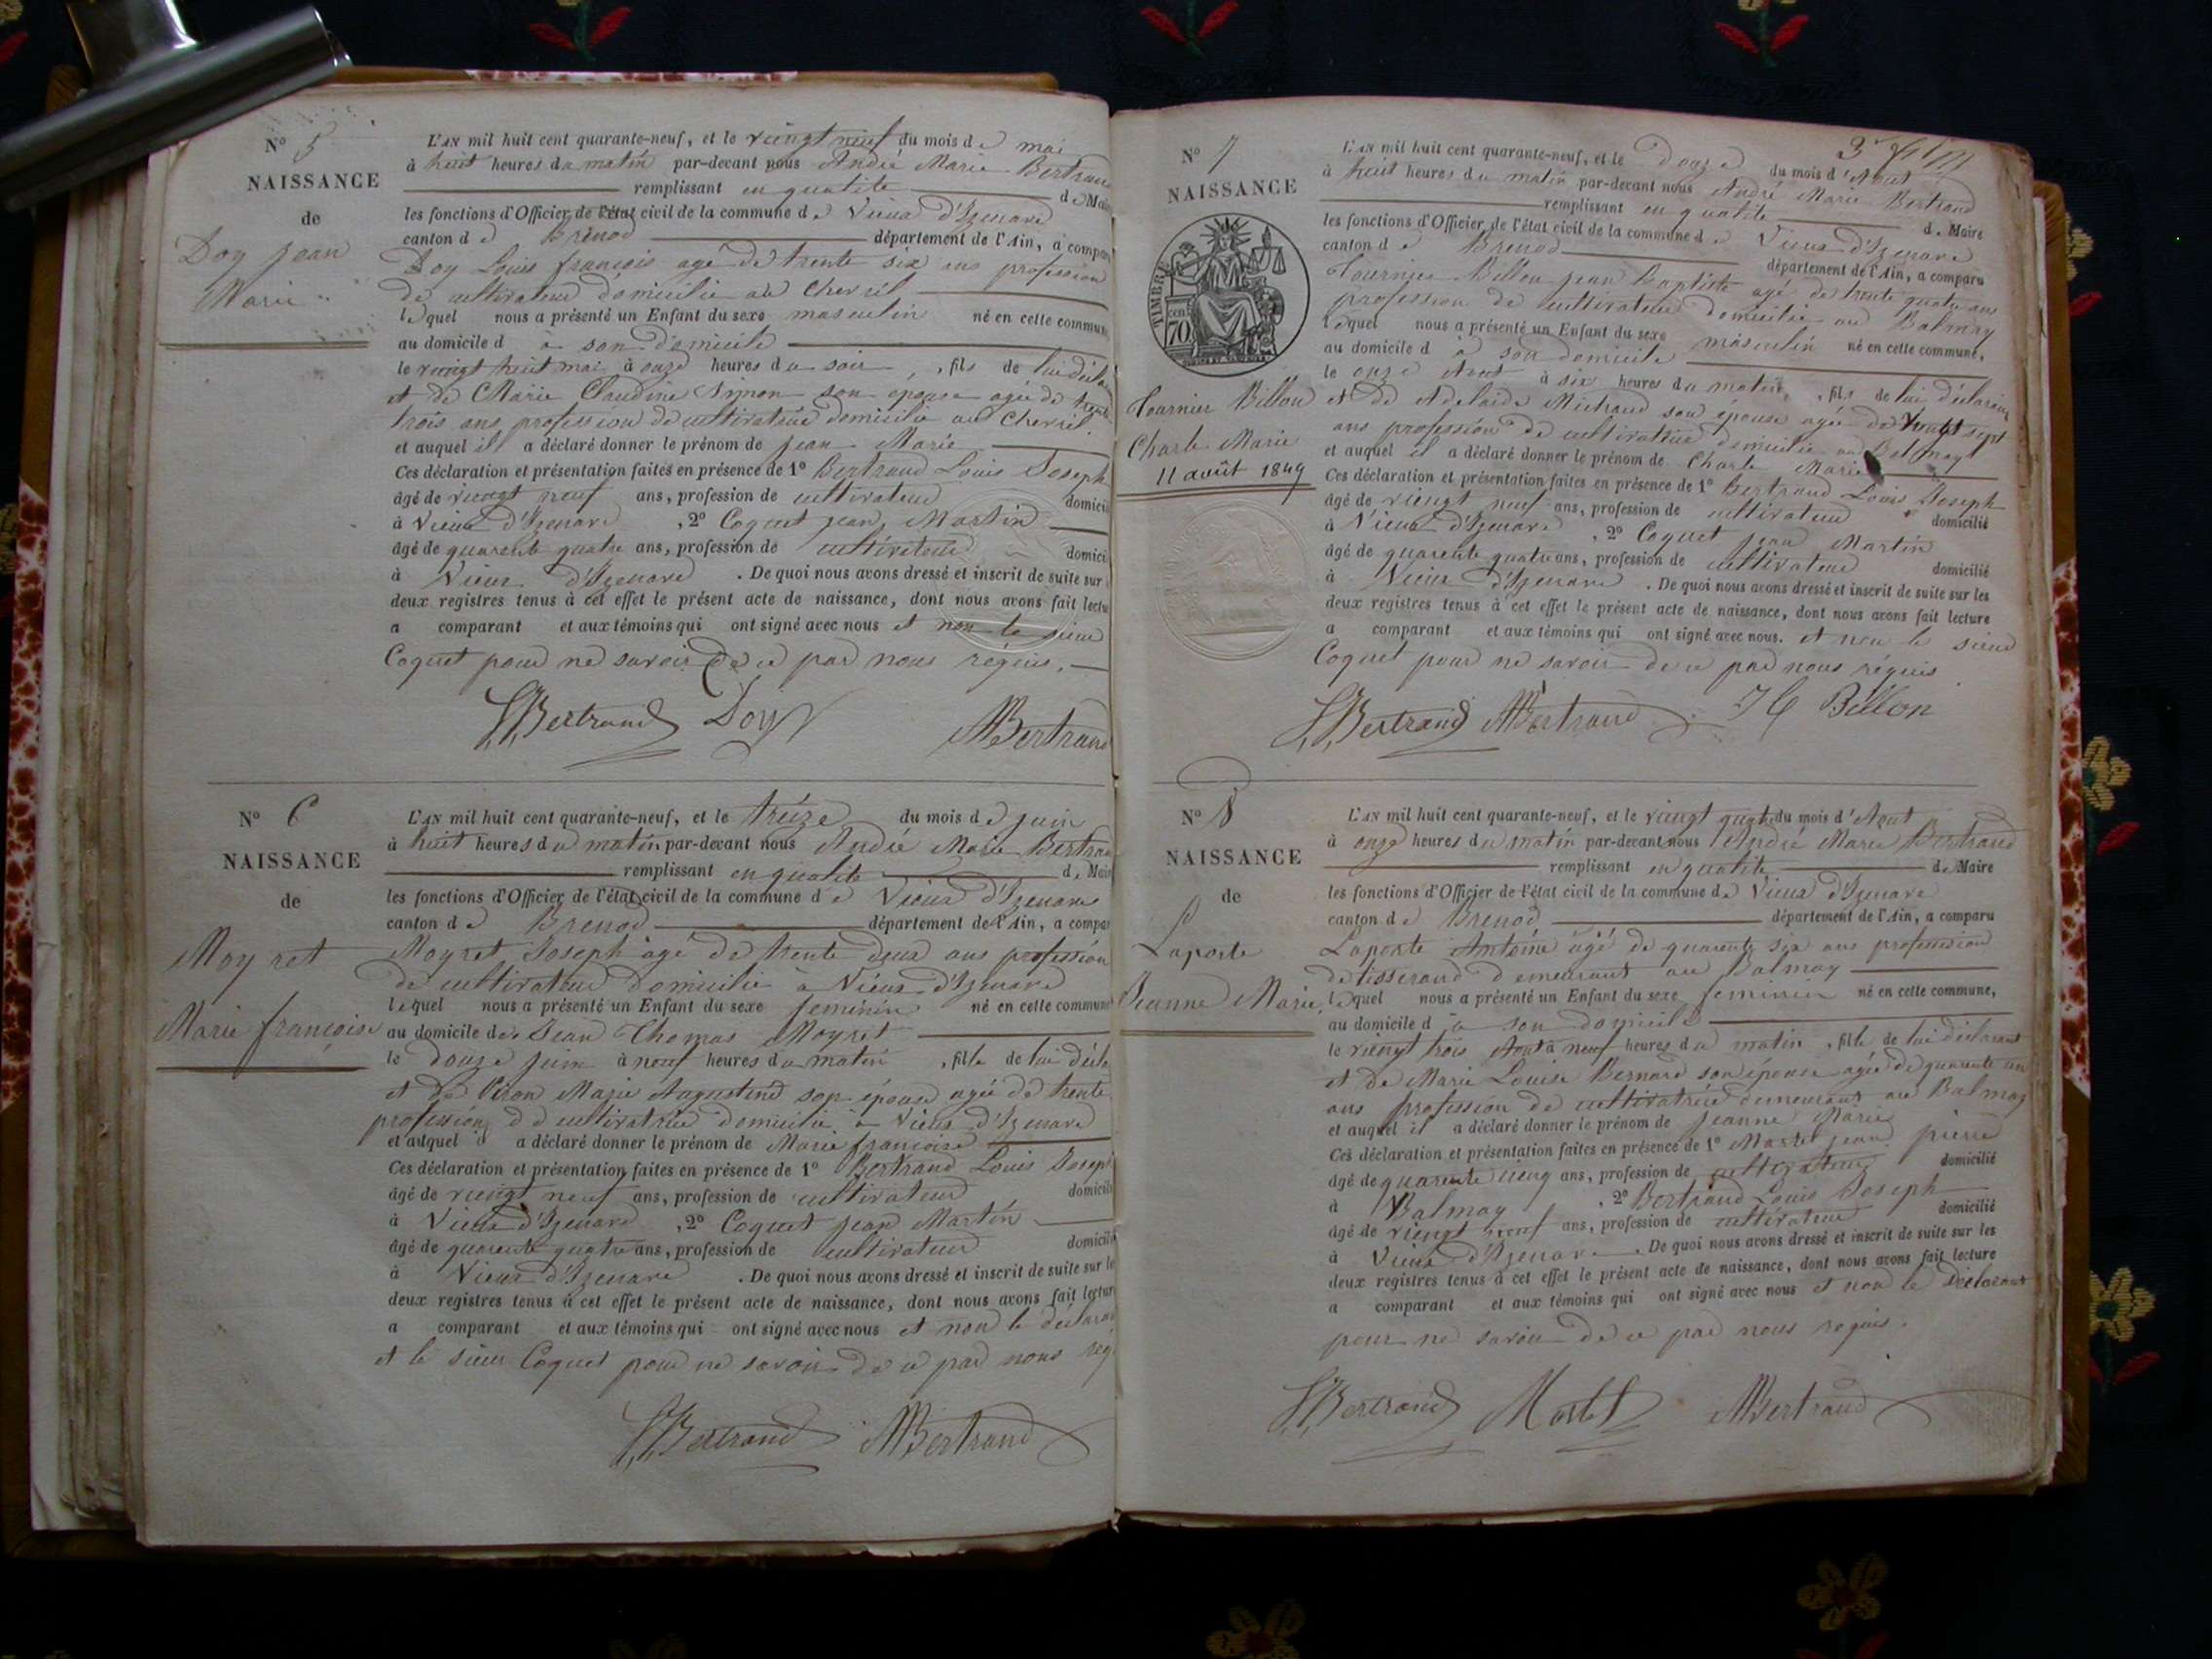 N° 5
NAISSANCE
de
Doy Jean
Marie
L'AN mil huit cent quarante-neuf, et le vingt neuf du mois de mai
à huit heures du matin par-devant nous André Marie Bertrand
remplissant en qualité de Mai
les fonctions d'Officier de l'état civil de la commune de Vieux d'Izenave
canton de Brenod département de l'Ain, a compar
Doy Louis françois agé de trente six ans profession
de cultivateur domicilié au Chevril
lequel nous a présenté un Enfant du sexe masculin né en cette commune
au domicile d à son domicile
le vingt huit mai à onze heures du soir, fils de lui décla
et de Marie Claudine son epouse agée de trente
trois ans profession de cultivatrice domicilie au Chevril
et auquel il a déclaré donner le prénom de Jean Marie
Ces déclaration et présentation faites en présence de 1° Bertrand Louis Joseph
âgé de vingt neuf ans, profession de cultivateur domicili
à Vieux d'Izenave, 2° Coquet jean Martin
âgé de quarente quatre ans, profession de cultivateur domici
à Vieux d'Izenave. De quoi nous avons dressé et inscrit de suite sur
deux registres tenus à cet effet le présent acte de naissance, dont nous avons fait lectu
a comparant et aux témoins qui ont signé avec nous et non le sieur
Coquet pour ne savoir de ce par nous requis.
LJBertrand Doy AMBertrand
N° 6
NAISSANCE
de
Moyret
Marie françoise
L'AN mil huit cent quarante-neuf, et le treize du mois de juin
à huit heures du matin par-devant nous André Marie Bertran
remplissant en qualité de Mair
les fonctions d'Officier de l'état civil de la commune de Vieux d'Izenave
canton de Brenod département de l'Ain, a compar
Moyret Joseph agé de trente deux ans profession
de cultivateur domicilié à Vieux d'Izenave
lequel nous a présenté un Enfant du sexe feminin né en cette commune
au domicile de Jean Thomas Moyret
le douze juin à neuf heures du matin, fille de lui décla
et de Piron Marie Augustine son épouse agée de trente
profession de cultivatrice domicilié à Vieux d'Izenave
et auquel il a déclaré donner le prénom de Marie françoise
Ces déclaration et présentation faites en présence de 1° Bertrand Louis Joseph
âgé de vingt neuf ans, profession de cultivateur domicili
à Vieux d'Izenave, 2° Coquet Jean Martin
âgé de quarente quatre ans, profession de cultivateur domicili
à Vieux d'Izenave. De quoi nous avons dressé et inscrit de suite sur le
deux registres tenus à cet effet le présent acte de naissance, dont nous avons fait lectur
a comparant et aux témoins qui ont signé avec nous et non le déclaran
et le sieur Coquet pour ne savoir de ce par nous req
LJBertrand AMBertrand
N° 7
NAISSANCE
TIMBRE
70
Tournier Billon
Charle Marie
11 août 1849
L'AN mil huit cent quarante-neuf, et le douze du mois d'Aout
à huit heures du matin par-devant nous André Marie Bertrand
remplissant en qualité de Maire
les fonctions d'Officier de l'état civil de la commune de Vieux d'Izenave
canton de Brenod département de l'Ain, a comparu
Tournier Billon jean Baptiste agé de trente quatre ans
profession de cultivateur domicilié au Balmay
lequel nous a présenté un Enfant du sexe masculin né en cette commune,
au domicile d à son domicile
le onze Aout à six heures du matin, fils de lui déclarant
et de Adelaide Michaud son épouse agée de vingt sept
ans profession de cultivatrice domicilie au Balmay
et auquel il a déclaré donner le prénom de Charle Marie
Ces déclaration et présentation faites en présence de 1° Bertrand Louis Joseph
âgé de vingt neuf ans, profession de cultivateur domicilié
à Vieux d'Izenave, 2° Coquet jean Martin
âgé de quarente quatre ans, profession de cultivateur domicilié
à Vieux d'Izenave. De quoi nous avons dressé et inscrit de suite sur les
deux registres tenus à cet effet le présent acte de naissance, dont nous avons fait lecture
a comparant et aux témoins qui ont signé avec nous. et non le sieur
Coquet pour ne savoir de ce par nous réquis
LJBertrand AMBertrand Billon
N° 8
NAISSANCE
de
Laporte
Jeanne Marie
L'AN mil huit cent quarante-neuf, et le vingt quatre du mois d'Aout
à onze heures du matin par-devant nous André Marie Bertrand
remplissant en qualité de Maire
les fonctions d'Officier de l'état civil de la commune de Vieux d'Izenave
canton de Brenod département de l'Ain, a comparu
Laporte Antoine agé de quarente six ans profession
de tisserand demeurant au Balmay
lequel nous a présenté un Enfant du sexe feminin né en cette commune,
au domicile d à son domicile
le vingt trois Aout à neuf heures du matin, fille de lui déclarant
et de Marie Louise Bernard son épouse agée de quarente un
ans profession de cultivatrice demeurant au Balmay
et auquel il a déclaré donner le prénom de Jeanne Marie
Ces déclaration et présentation faites en présence de 1° Martel jean pierre
âgé de quarente cinq ans, profession de cultivateur domicilié
à Balmay, 2° Bertrand Louis Joseph
âgé de vingt neuf ans, profession de cultivateur domicilié
à Vieux d'Izenave. De quoi nous avons dressé et inscrit de suite sur les
deux registres tenus à cet effet le présent acte de naissance, dont nous avons fait lecture
a comparant et aux témoins qui ont signé avec nous et non le déclarant
pour ne savoir de ce par nous requis.
LJBertrand Martel AMBertrand